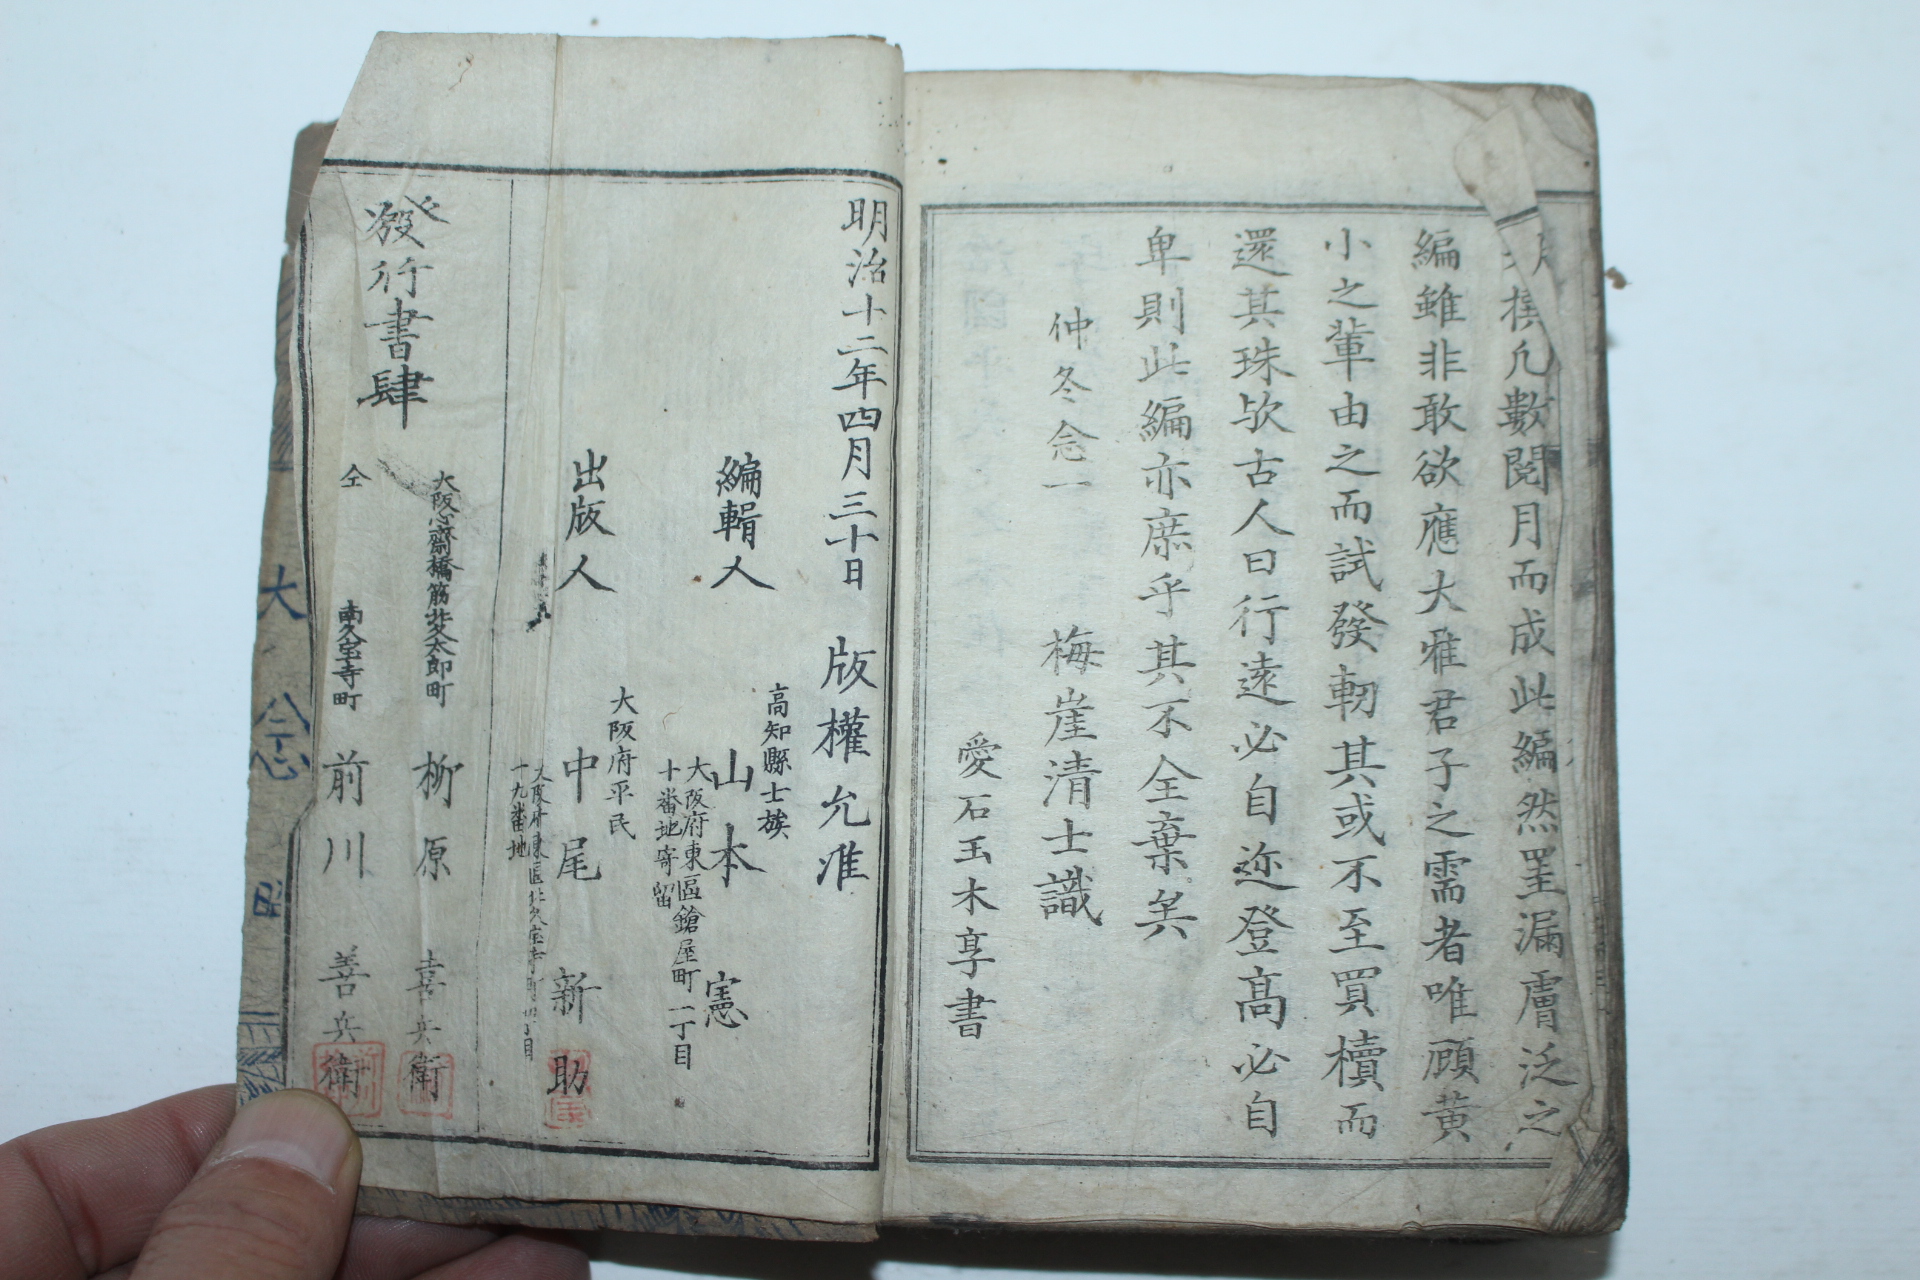 撰凡數閱月而成此編然罣漏膚泛之
編雖非敢欲應大雅君子之需者唯顧黄
小之輩由之而試發軔其或不至買櫝而
還其珠欤古人曰行遠必自迩登髙必自
卑則此編亦庶乎其不全棄矣
仲冬念一 梅崖清士識
愛石玉木享書
明治十二年四月三十日 版權允准
高知縣士族
編輯人 山本 憲
大阪府東區鎗屋町一丁目
十番地寄留
大阪府平民
出版人 中尾新助
大阪府東區北久宝寺町四丁目
十九番地
發行書肆
大阪心齋橋筋北久太郎町 柳原喜兵衛
仝 南久宝寺町 前川善兵衛
大